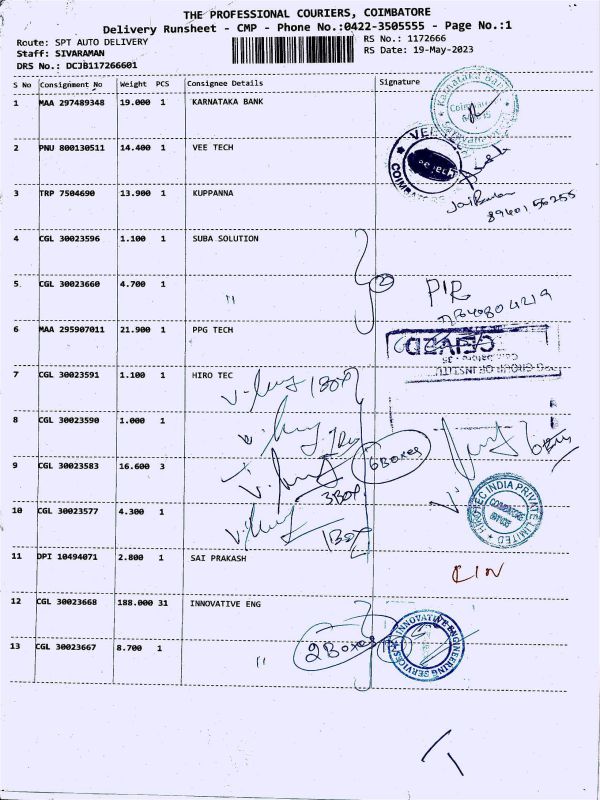 THE PROFESSIONAL COURIERS, COIMBATORE
Delivery Runsheet - CMP - Phone No.:0422-3505555 - Page No.:1
Route: SPT AUTO DELIVERY
RS No.: 1172666
Staff: SIVARAMAN
RS Date: 19-May-2023
DRS No.: DCJB117266601
S No Consignment No Weight PCS Consignee Details Signature
1 MAA 297489348 19.000 1 KARNATAKA BANK
2 PNU 800130511 14.400 1 VEE TECH
3 TRP 7504690 13.900 1 KUPPANNA
89401 56255
4 CGL 30023596 1.100 1 SUBA SOLUTION
5 CGL 30023660 4.700 1 "
2
6 MAA 295907011 21.900 1 PPG TECH
7 CGL 30023591 1.100 1 HIRO TEC
8 CGL 30023590 1.000 1
9 CGL 30023583 16.600 3
6 Boxes
10 CGL 30023577 4.300 1
11 DPI 10494071 2.800 1 SAI PRAKASH
12 CGL 30023668 188.000 31 INNOVATIVE ENG
INNOVATIVE ENGINEERING SERVICES
13 CGL 30023667 8.700 1 "
2 Boxes